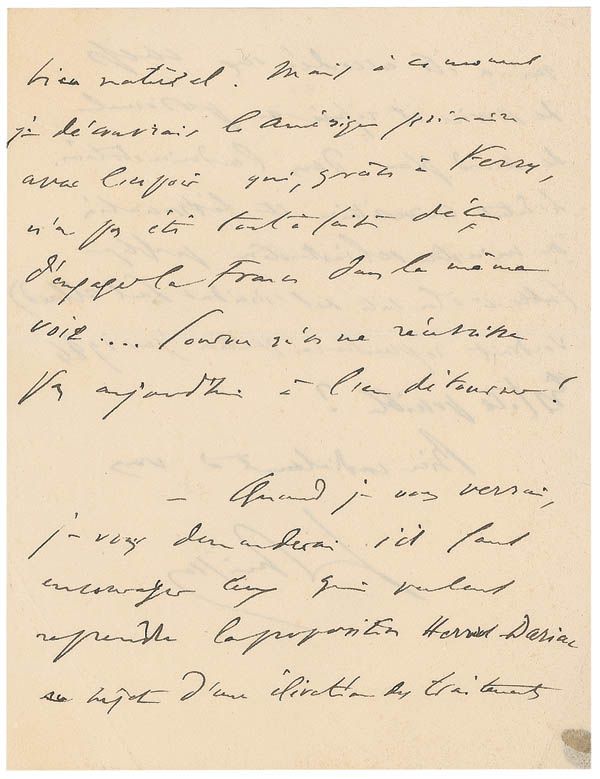 bien naturel. Mais à ce moment
je découvrais l'Amérique primaire
avec l'espoir qui, grâce à Ferry,
n'a pas été tout à fait déçu
d'engager la France dans la même
voie.... Pourvu qu'on ne réussisse
pas aujourd'hui à l'en détourner!
— Quand je vous verrai,
je vous demanderai s'il faut
encourager ceux qui veulent
reprendre la proposition Herriot-Dariac
au sujet d'une élévation des traitements